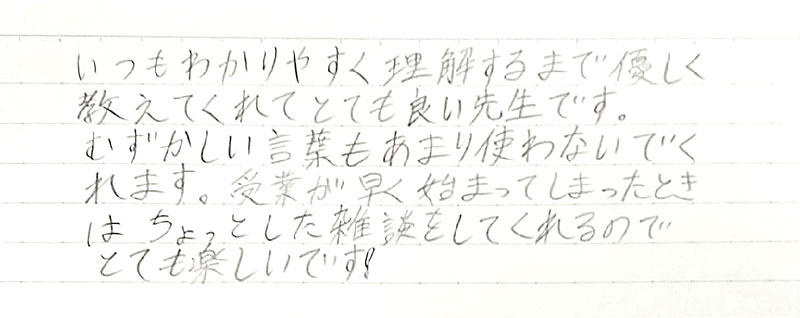 いつもわかりやすく理解するまで優しく
教えてくれてとても良い先生です。
むずかしい言葉もあまり使わないでく
れます。受業が早く始まってしまったとき
はちょっとした雑談をしてくれるので
とても楽しいです!